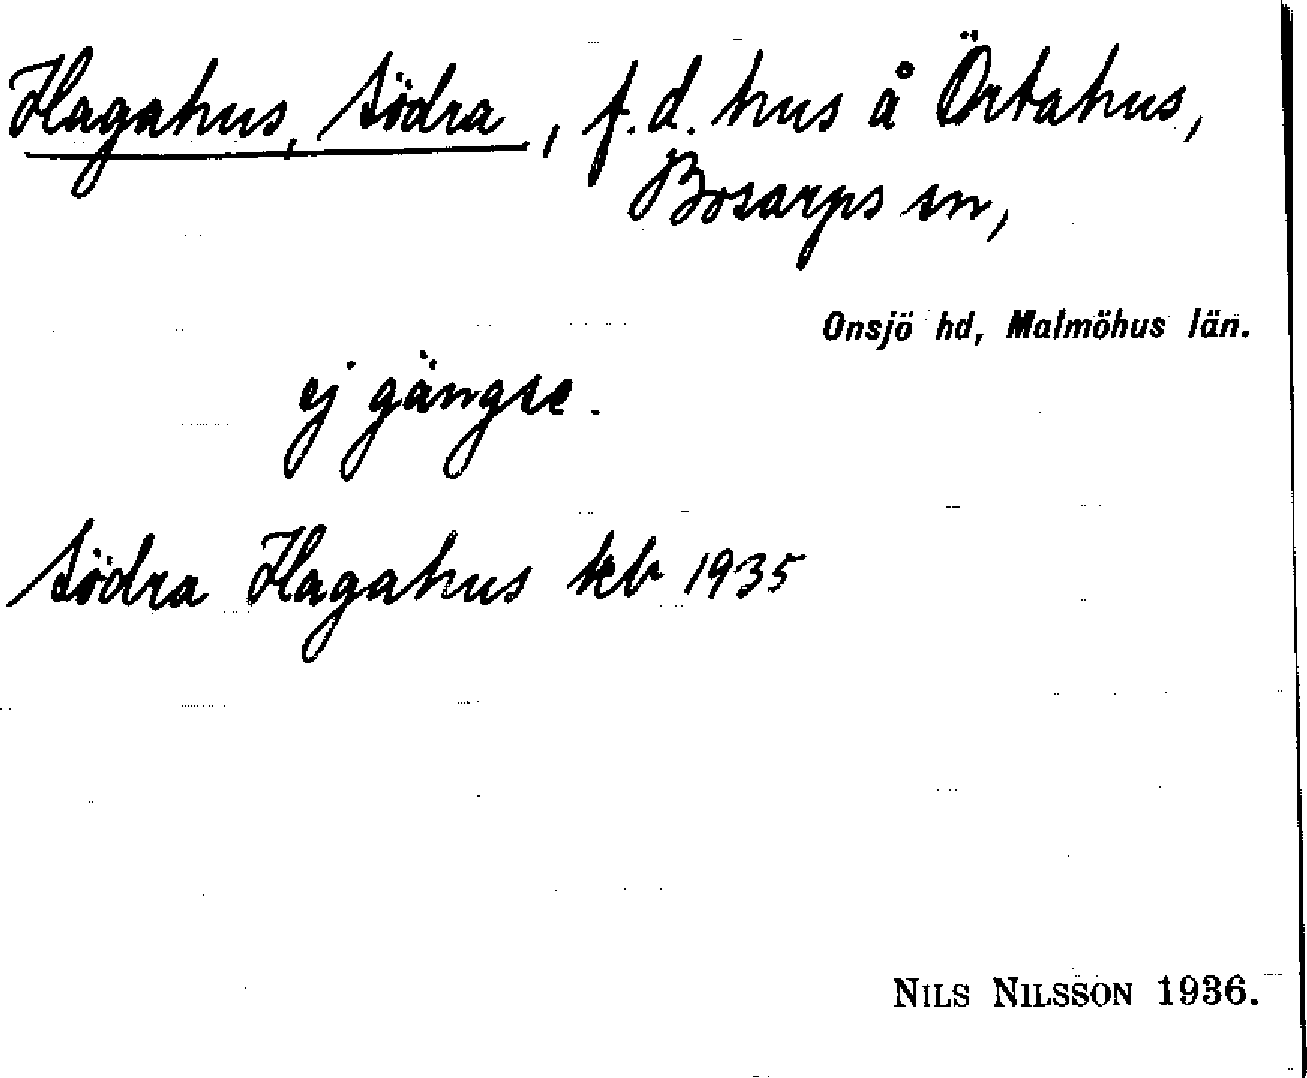 Hagahus, Södra, f.d. hus å Örtahus,
Bosarps sn,
Onsjö hd, Malmöhus län.
ej gängse.
Södra Hagahus kb 1935
NILS NILSSON 1936.